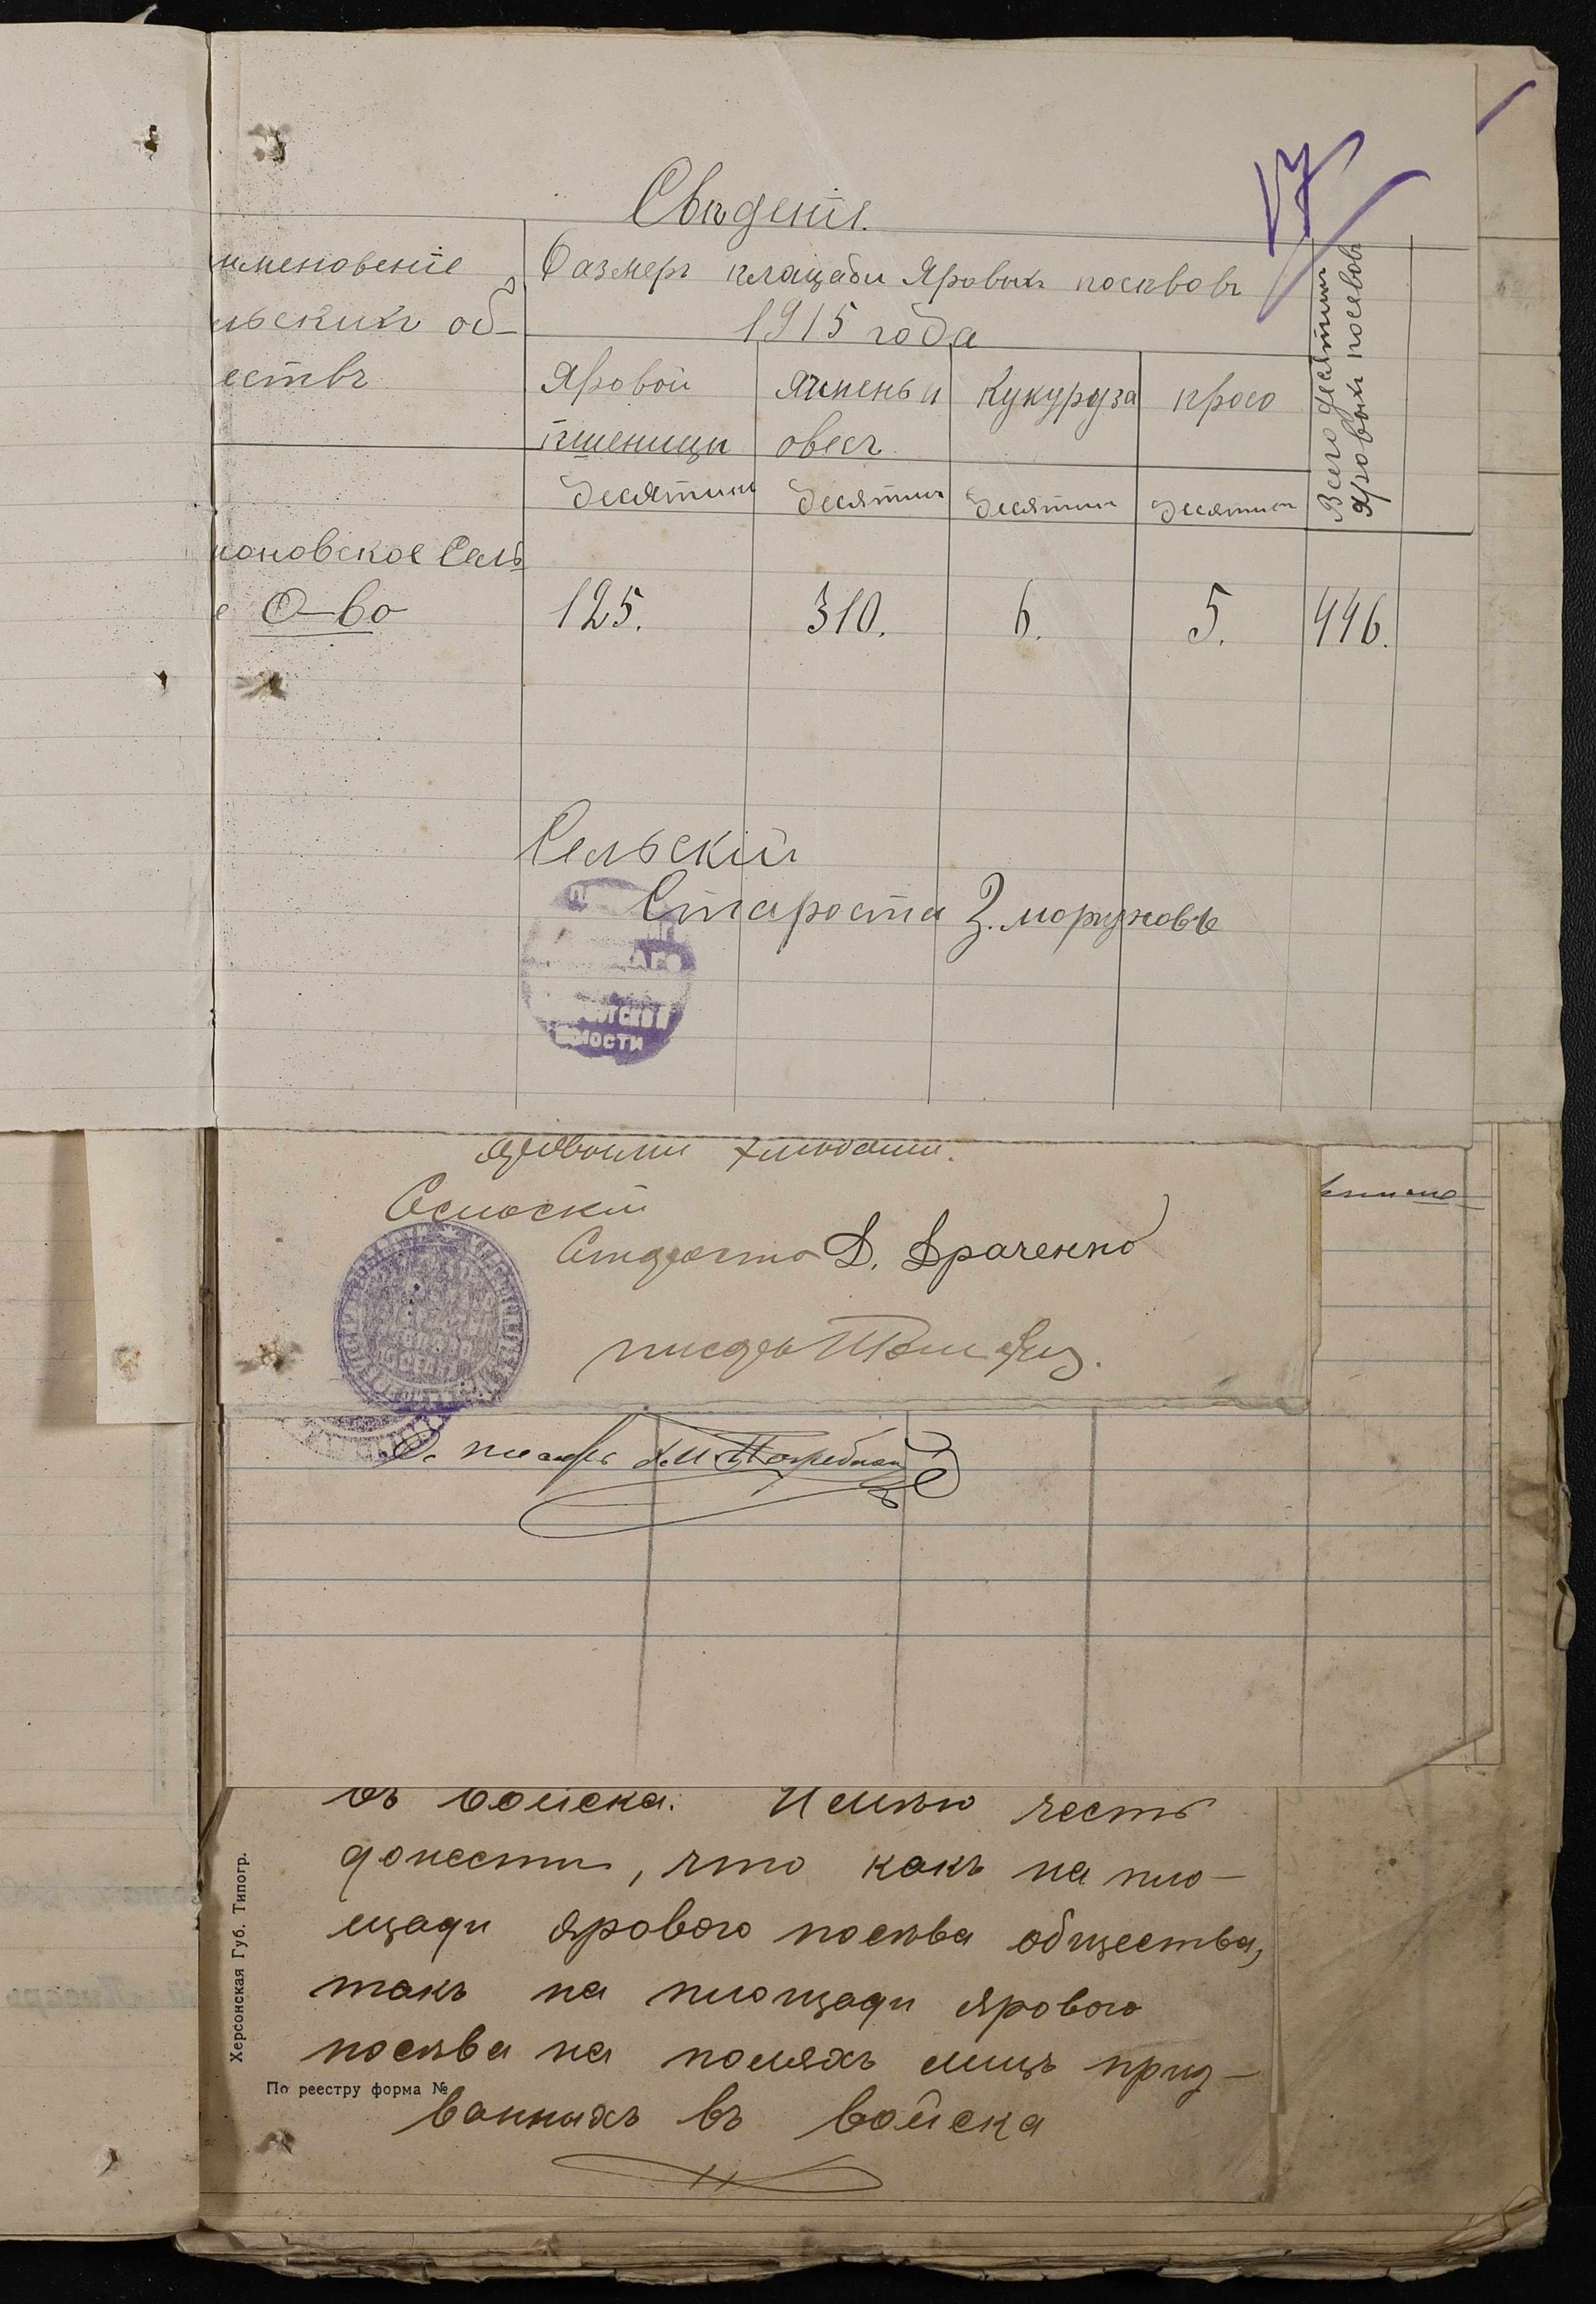 17
Свѣденія.
именовеніе
льскихъ об-
ествъ
Размеръ площади Яровыхъ посѣвовъ
1915 года
Яровой
пшеницы
Ячмень и
овесъ
Кукуруза
просо
Всего десятинъ
яровыхъ посевовъ
Десятинъ Десятинъ Десятинъ Десятинъ
коновское Сель
е О-во 125. 310. 6. 5. 446.
Сельскій
Староста З. моруновъ
волости
яровыми хлѣбами.
Сельскій
Староста Д. Драченко
писарь
писарь
въ войска. Имѣю честь
донести, что какъ на пло-
щади ярового посѣва общества,
такъ на площади ярового
посѣва на поляхъ лицъ приз-
ванныхъ въ войска
Херсонская Губ. Типогр.
По реестру форма №